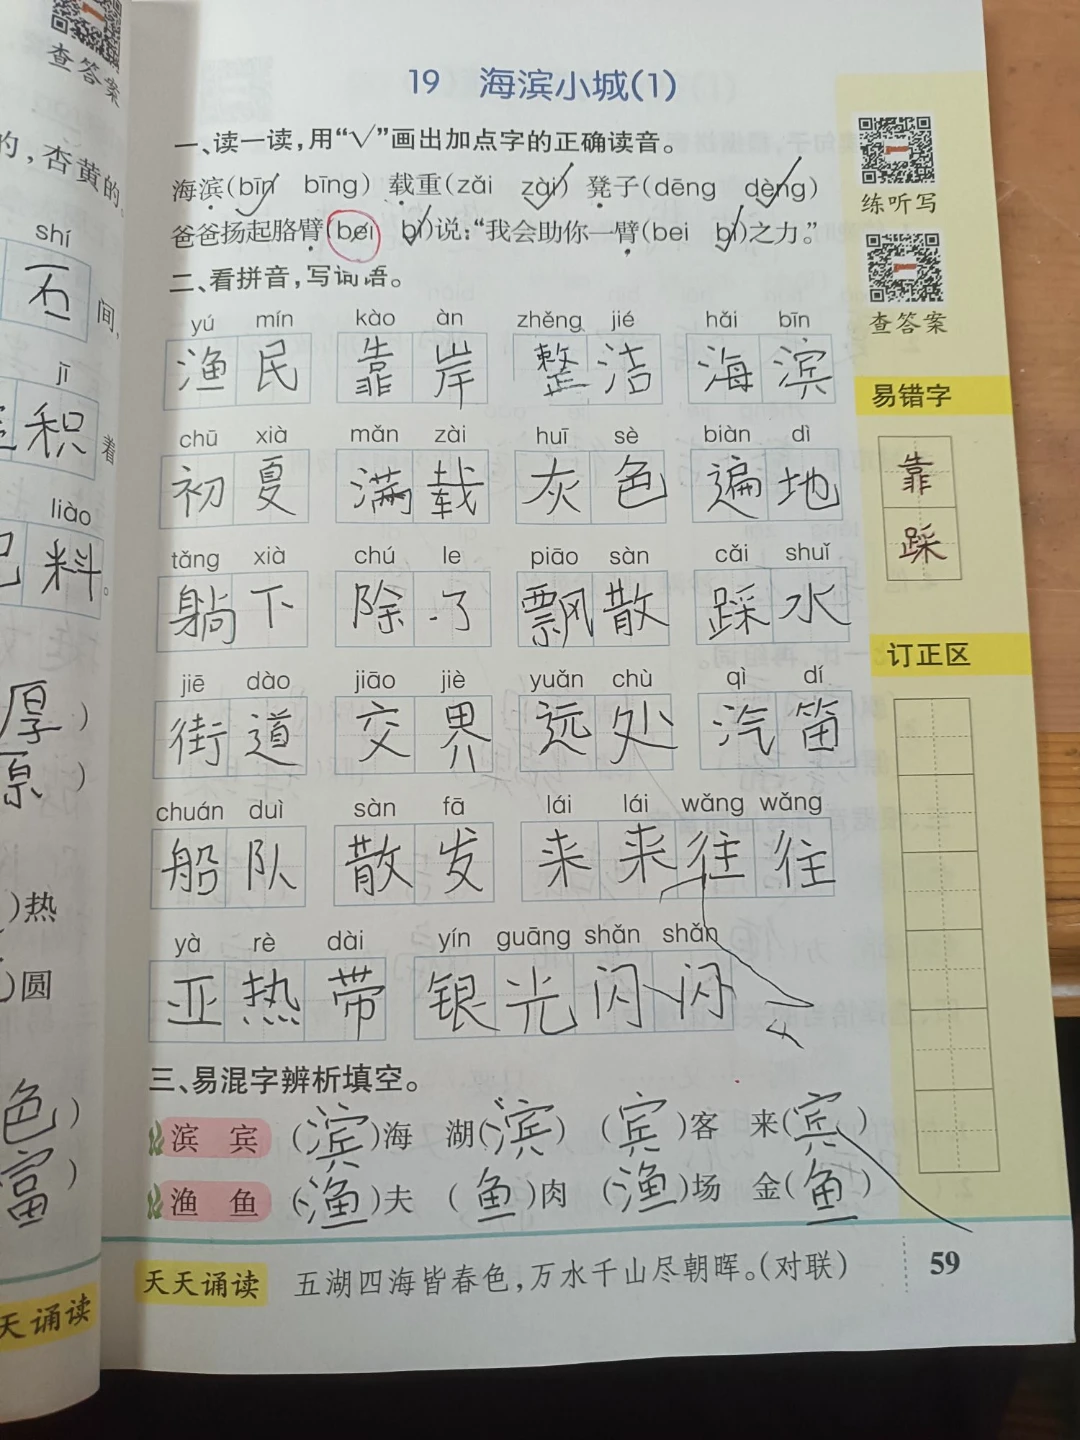 查答案
的,杏黄的。
shí
石
间,
jī
积
着
liào
料。
厚)
原)
)热
)圆
色)
富)
天诵读
19 海滨小城(1)
一、读一读,用“√”画出加点字的正确读音。
海滨(bīn bīng) 载重(zǎi zài) 凳子(dēng dèng)
爸爸扬起胳臂(bei bì)说:“我会助你一臂(bei bì)之力。”
二、看拼音,写词语。
yú mín kào àn zhěng jié hǎi bīn
渔民 靠岸 整洁 海滨
chū xià mǎn zài huī sè biàn dì
初夏 满载 灰色 遍地
tǎng xià chú le piāo sàn cǎi shuǐ
躺下 除了 飘散 踩水
jiē dào jiāo jiè yuǎn chù qì dí
街道 交界 远处 汽笛
chuán duì sàn fā lái lái wǎng wǎng
船队 散发 来来往往
yà rè dài yín guāng shǎn shǎn
亚热带 银光闪闪
三、易混字辨析填空。
滨 宾 (滨)海 湖(滨) (宾)客 来(宾)
渔 鱼 (渔)夫 (鱼)肉 (渔)场 金(鱼)
天天诵读 五湖四海皆春色,万水千山尽朝晖。(对联)
59
练听写
查答案
易错字
靠
踩
订正区